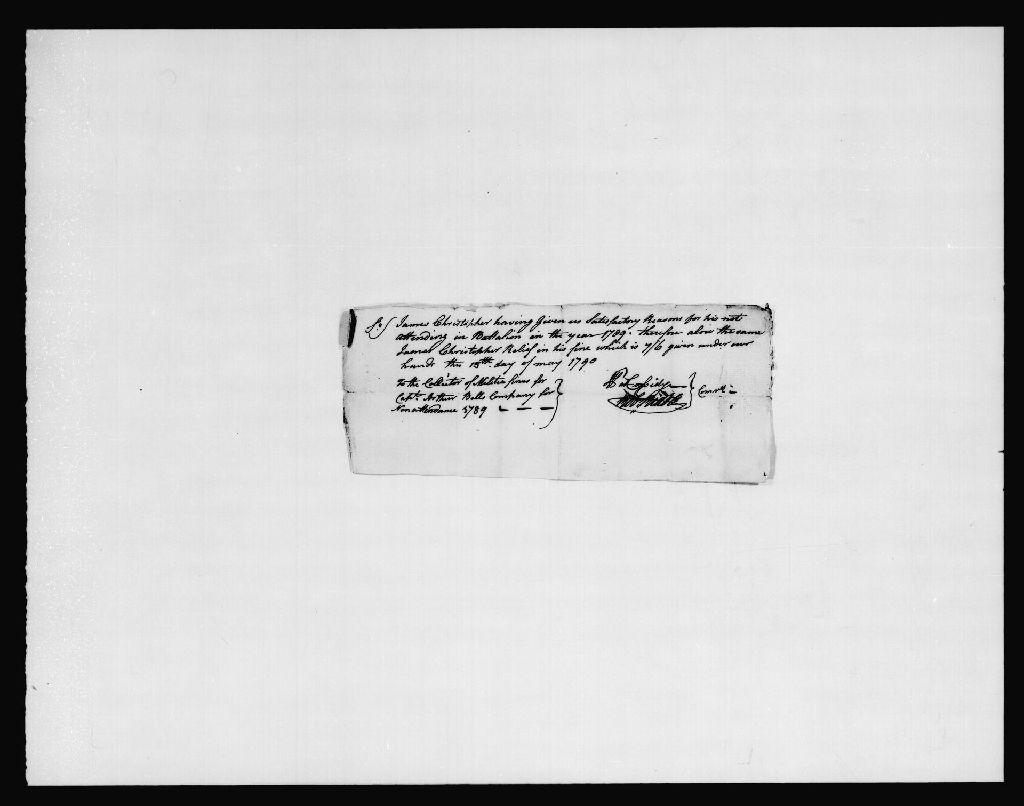 Sr/ James Christopher having Given us Satisfactory Reasons for his not
attending in Battalion in the year 1789. therefore alow the same
James Christopher Relief in his fine which is 7/6 given under our
hands this 18th day of may 1790
to the Collector of Militia fines for
Capt. Arthur Bells Company for
Non attendance 1789
Comrs.